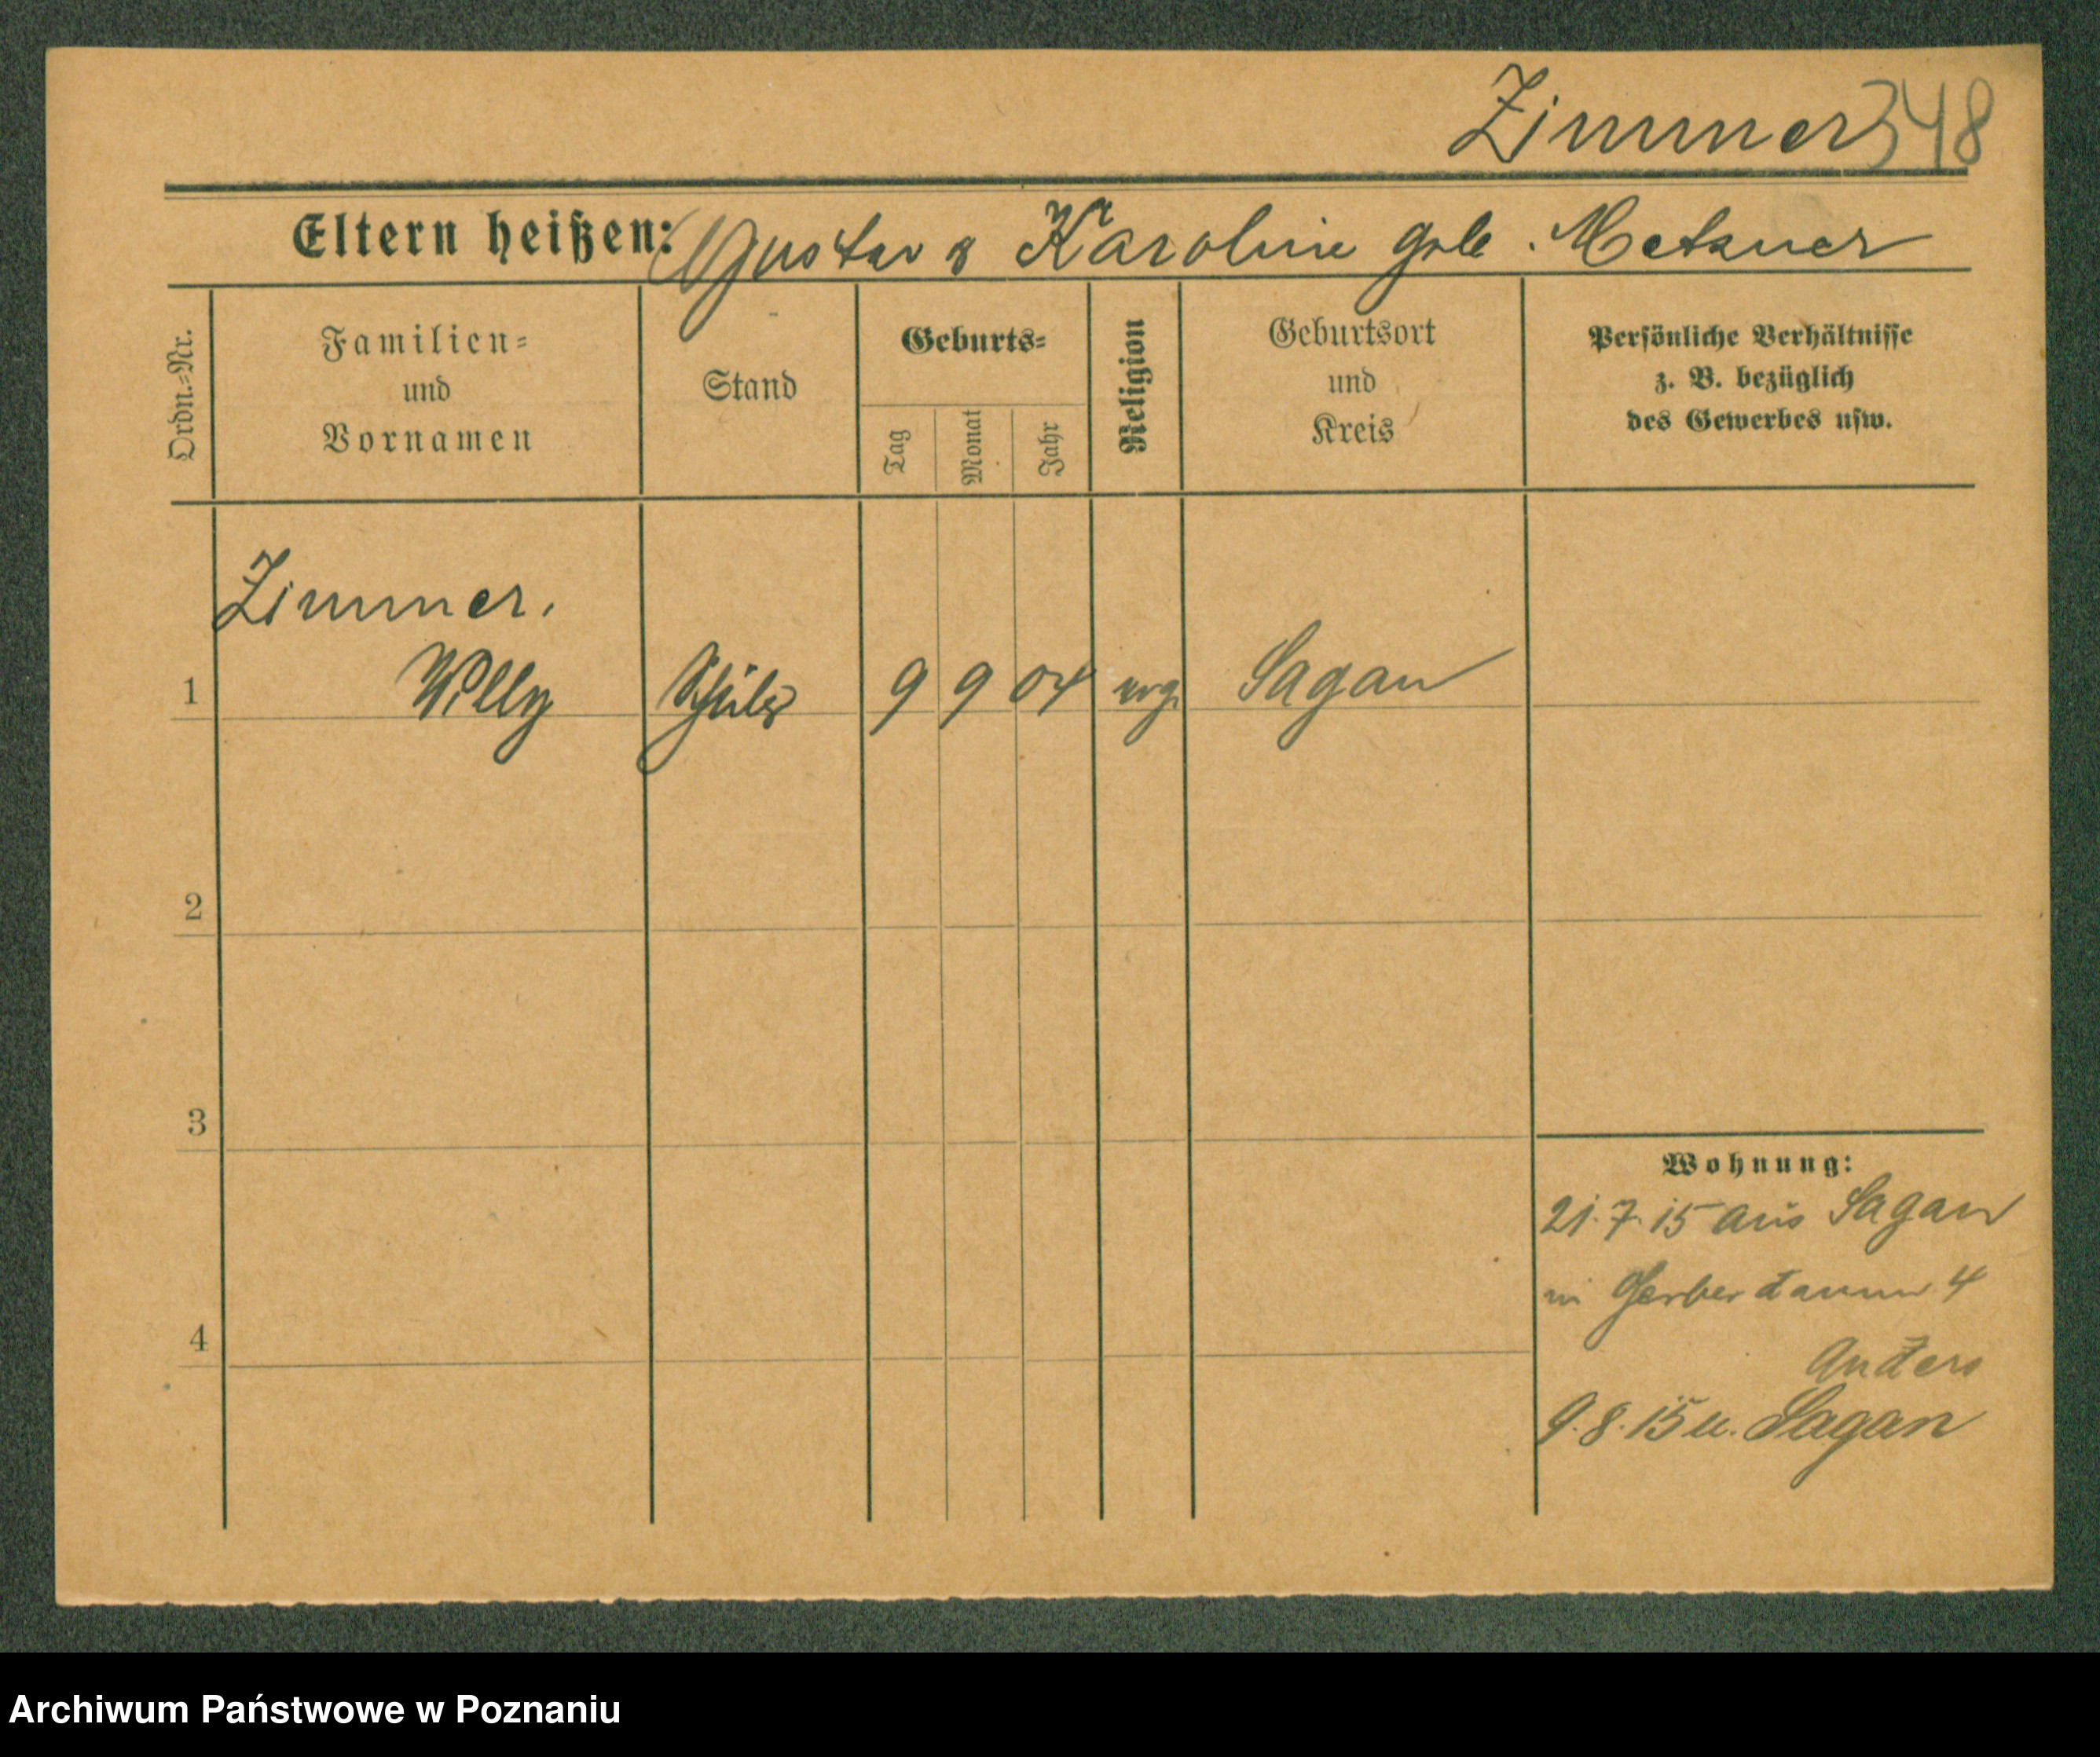 Zimmer 348
Eltern heißen: Gustav & Karoline geb. Metzner
Ordn.=Nr.
Familien=
und
Vornamen
Stand
Geburts=
Tag
Monat
Jahr
Religion
Geburtsort
und
Kreis
Persönliche Verhältnisse
z. B. bezüglich
des Gewerbes usw.
Zimmer.
1 Willy Schüler 9 9 04 evg. Sagan
2
3
Wohnung:
21.7.15 aus Sagan
in Gerberdamm 4
4
Anders
9.8.15 u. Sagan
Archiwum Państwowe w Poznaniu